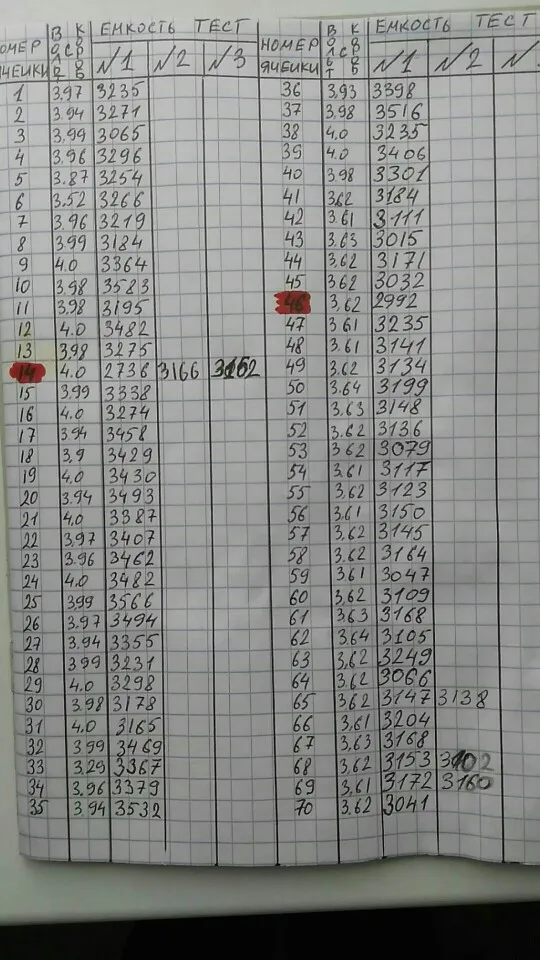 НОМЕР ЯЧЕЙКИ ЕМКОСТЬ ТЕСТ
№1 №2 №3
1 3,97 3235
2 3.94 3271
3 3,99 3065
4 3.96 3296
5 3.87 3254
6 3.52 3266
7 3.96 3219
8 3.99 3184
9 4.0 3364
10 3,98 3583
11 3,98 3195
12 4.0 3482
13 3,98 3275
14 4.0 2736 3166
15 3,99 3338
16 4.0 3274
17 3.94 3458
18 3,9 3429
19 4.0 3430
20 3.94 3493
21 4.0 3387
22 3,97 3407
23 3.96 3462
24 4.0 3482
25 3,99 3566
26 3.97 3494
27 3.94 3355
28 3.99 3231
29 4.0 3298
30 3.98 3178
31 4.0 3165
32 3.99 3469
33 3.29 3367
34 3.96 3379
35 3.94 3532
НОМЕР ЯЧЕЙКИ ЕМКОСТЬ ТЕСТ
№1 №2
36 3,93 3398
37 3,98 3516
38 4.0 3235
39 4.0 3406
40 3.98 3301
41 3.62 3184
42 3.61 3111
43 3,63 3015
44 3,62 3171
45 3.62 3032
46 3,62 2992
47 3.61 3235
48 3.61 3141
49 3.62 3134
50 3.64 3199
51 3.63 3148
52 3.62 3136
53 3.62 3079
54 3.61 3117
55 3,62 3123
56 3.61 3150
57 3.62 3145
58 3.62 3164
59 3.61 3047
60 3,62 3109
61 3.63 3168
62 3.64 3105
63 3,62 3249
64 3.62 3066
65 3.62 3147 3138
66 3,61 3204
67 3,63 3168
68 3,62 3153 3102
69 3,61 3172 3160
70 3,62 3041